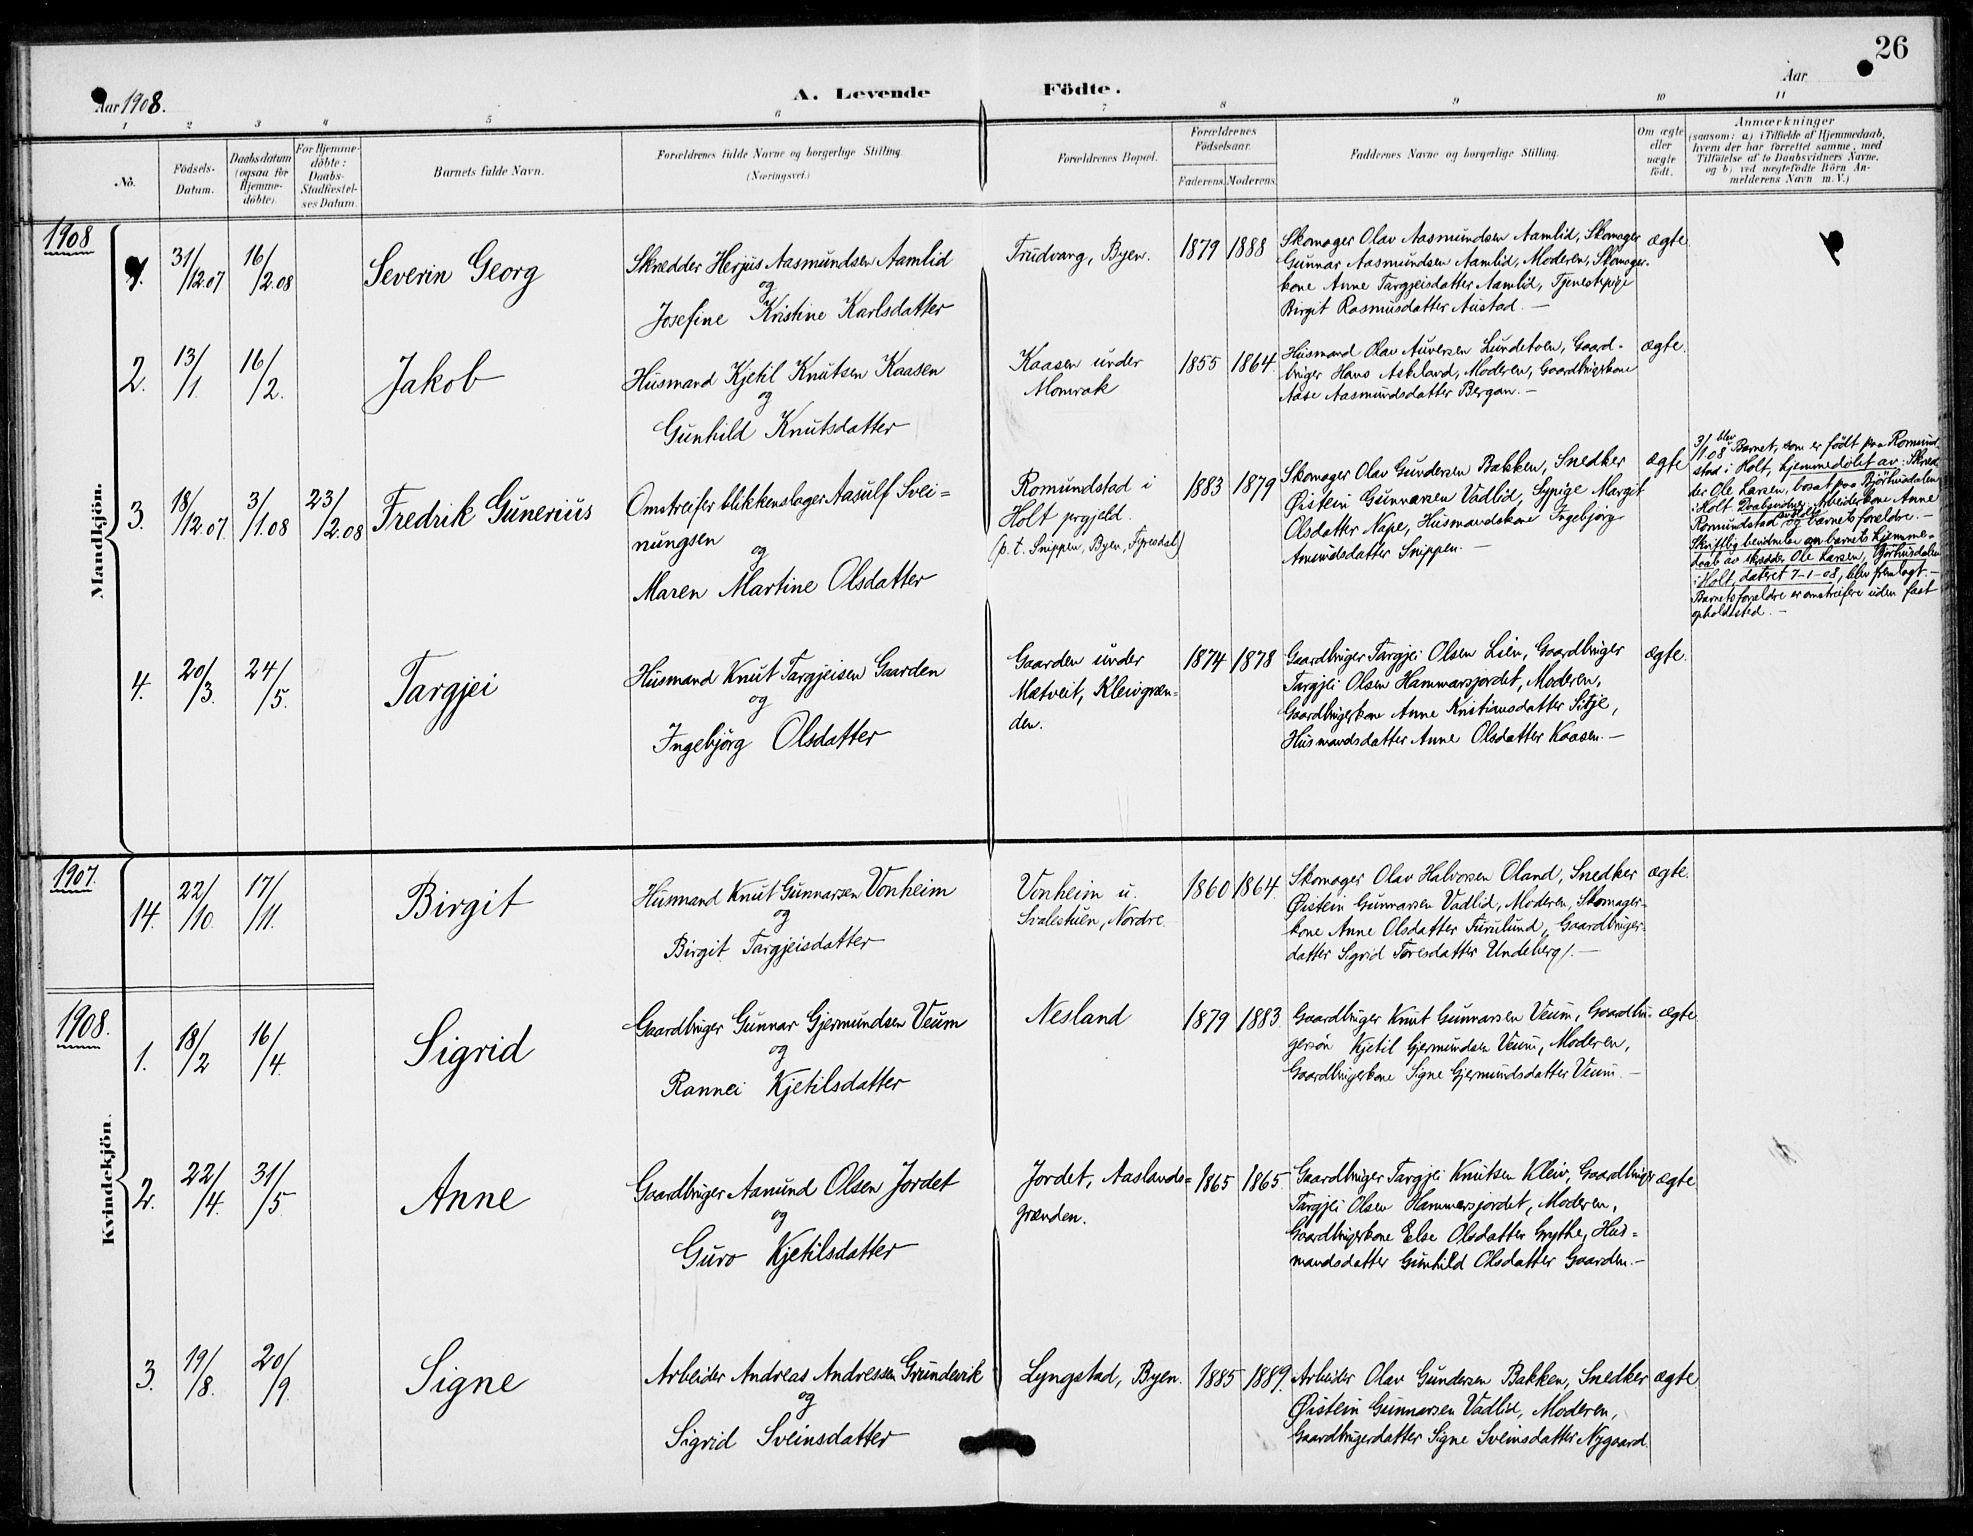 26
Aar 1908.
A. Levende Födte.
Aar
1 2 3 4 5 6 7 8 9 10 11
No.
Födsels-
Datum.
Daabsdatum
(ogsaa for
Hjemme-
döbte).
For Hjemme-
döbte:
Daabs-
Stadfæstel-
ses Datum.
Barnets fulde Navn.
Forældrenes fulde Navne og borgerlige Stilling.
(Næringsvei.)
Forældrenes Bopæl.
Forældrenes
Födselsaar.
Faderens. Moderens.
Faddernes Navne og borgerlige Stilling.
Om ægte
eller
uægte
födt.
Anmærkninger
(saasom: a) i Tilfælde af Hjemmedaab,
hvem der har forrettet samme, med
Tilföielse af to Daabsvidners Navne,
og b) ved uægtefödte Börn An-
melderens Navn m. V.)
Mandkjön.
1908
1.
31/12.07
16/2.08
Severin Georg
Skrædder Herjus Aasmundsen Aamlid
og
Josefine Kristine Karlsdatter
Trudvang, Byen.
1879 1888
Skomager Olav Aasmundsen Aamlid, Skomager
Gunnar Aasmundsen Aamlid, Moderen, Skomager-
kone Anne Targjeisdatter Aamlid, Tjenestepige
Birgit Rasmusdatter Austad. —
ægte.
2.
13/1.
16/2.
Jakob
Husmand Kjetil Knutsen Kaasen
og
Gunhild Knutsdatter
Kaasen under
Momrak
1855 1864
Husmand Olav Auversen Lundetoen, Gaard-
bruger Hans Askeland, Moderen, Gaardbrugerkone
Aase Aasmundsdatter Bergan. —
ægte.
3.
18/12.07.
3/1.08
23/2.08
Fredrik Gunerius
Omstreifer blikkenslager Aasulf Svei-
nungsen
og
Maren Martine Olsdatter
Romundstad i
Holt prgjeld.
(p. t. Snippen, Byen, Fyresdal)
1883 1879
Skomager Olav Gundersen Bakken, Snedker
Øistein Gunnarsen Vadlid, Sypige Margit
Olsdatter Nape, Husmandskone Ingebjørg
Amundsdatter Snippen. —
ægte
3/1.08 blev Barnet, som er født paa Romund-
stad i Holt, hjemmedøbt av: Skræd-
der Ole Larsen, bosat paa Bjørhusdalen
i Holt. Daabsvidner: Arbeiderkone Anne
Romundstad, og barnets forældre. —
Skriftlig bevidnelse om barnets hjemme-
daab av skræder Ole Larsen, Bjørhusdalen
i Holt, dateret 7-1-08, blev fremlagt. —
Barnets forældre er omstreifere uden fast
opholdssted. —
4.
20/3.
24/5.
Targjei
Husmand Knut Targjeisen Gaarden
og
Ingebjørg Olsdatter
Gaarden under
Mætveit, Kleivgræn-
den.
1874 1878
Gaardbruger Targjei Olsen Lien, Gaardbruger
Targjei Olsen Hammersjordet, Moderen,
Gaardbrugerkone Anne Kristiansdatter Sitje,
Husmandsdatter Anne Olsdatter Kaasen. —
ægte.
Kvindekjön.
1907.
14.
22/10.
17/11.
Birgit
Husmand Knut Gunnarsen Vonheim
og
Birgit Targjeisdatter
Vonheim u.
Svalestuen, Nordre.
1860 1864.
Skomager Olav Halvorsen Oland, Snedker
Øistein Gunnarsen Vadlid, Moderen, Skomager-
kone Anne Olsdatter Furulund, Gaardbruger-
datter Sigrid Toresdatter Undeberg/. —
ægte.
1908.
1.
18/2
16/4.
Sigrid
Gaardbruger Gunnar Gjermundsen Veum
og
Rannei Kjetilsdatter
Nesland
1879 1883
Gaardbruger Knut Gunnarsen Veum, Gaardbru-
gersøn Kjetil Gjermundsen Veum, Moderen,
Gaardbrugerkone Signe Gjermundsdatter Veum. —
ægte
2.
22/4.
31/5.
Anne
Gaardbruger Aanund Olsen Jordet
og
Guro Kjetilsdatter
Jordet, Aaslands-
grænden.
1865 1865.
Gaardbruger Targjei Knutsen Kleiv, Gaardbruger
Targjei Olsen Hammersjordet, Moderen,
Gaardbrugerkone Else Olsdatter Grythe, Hus-
mandsdatter Gunhild Olsdatter Gaarden. —
ægte
3.
19/8.
20/9.
Signe
Arbeider Andreas Andresen Grundevik
og
Sigrid Sveinsdatter
Lyngstad, Byen.
1885 1889.
Arbeider Olav Gundersen Bakken, Snedker
Øistein Gunnarsen Vadlid, Moderen,
Gaardbrugerdatter Signe Sveinsdatter Nygaard.
ægte